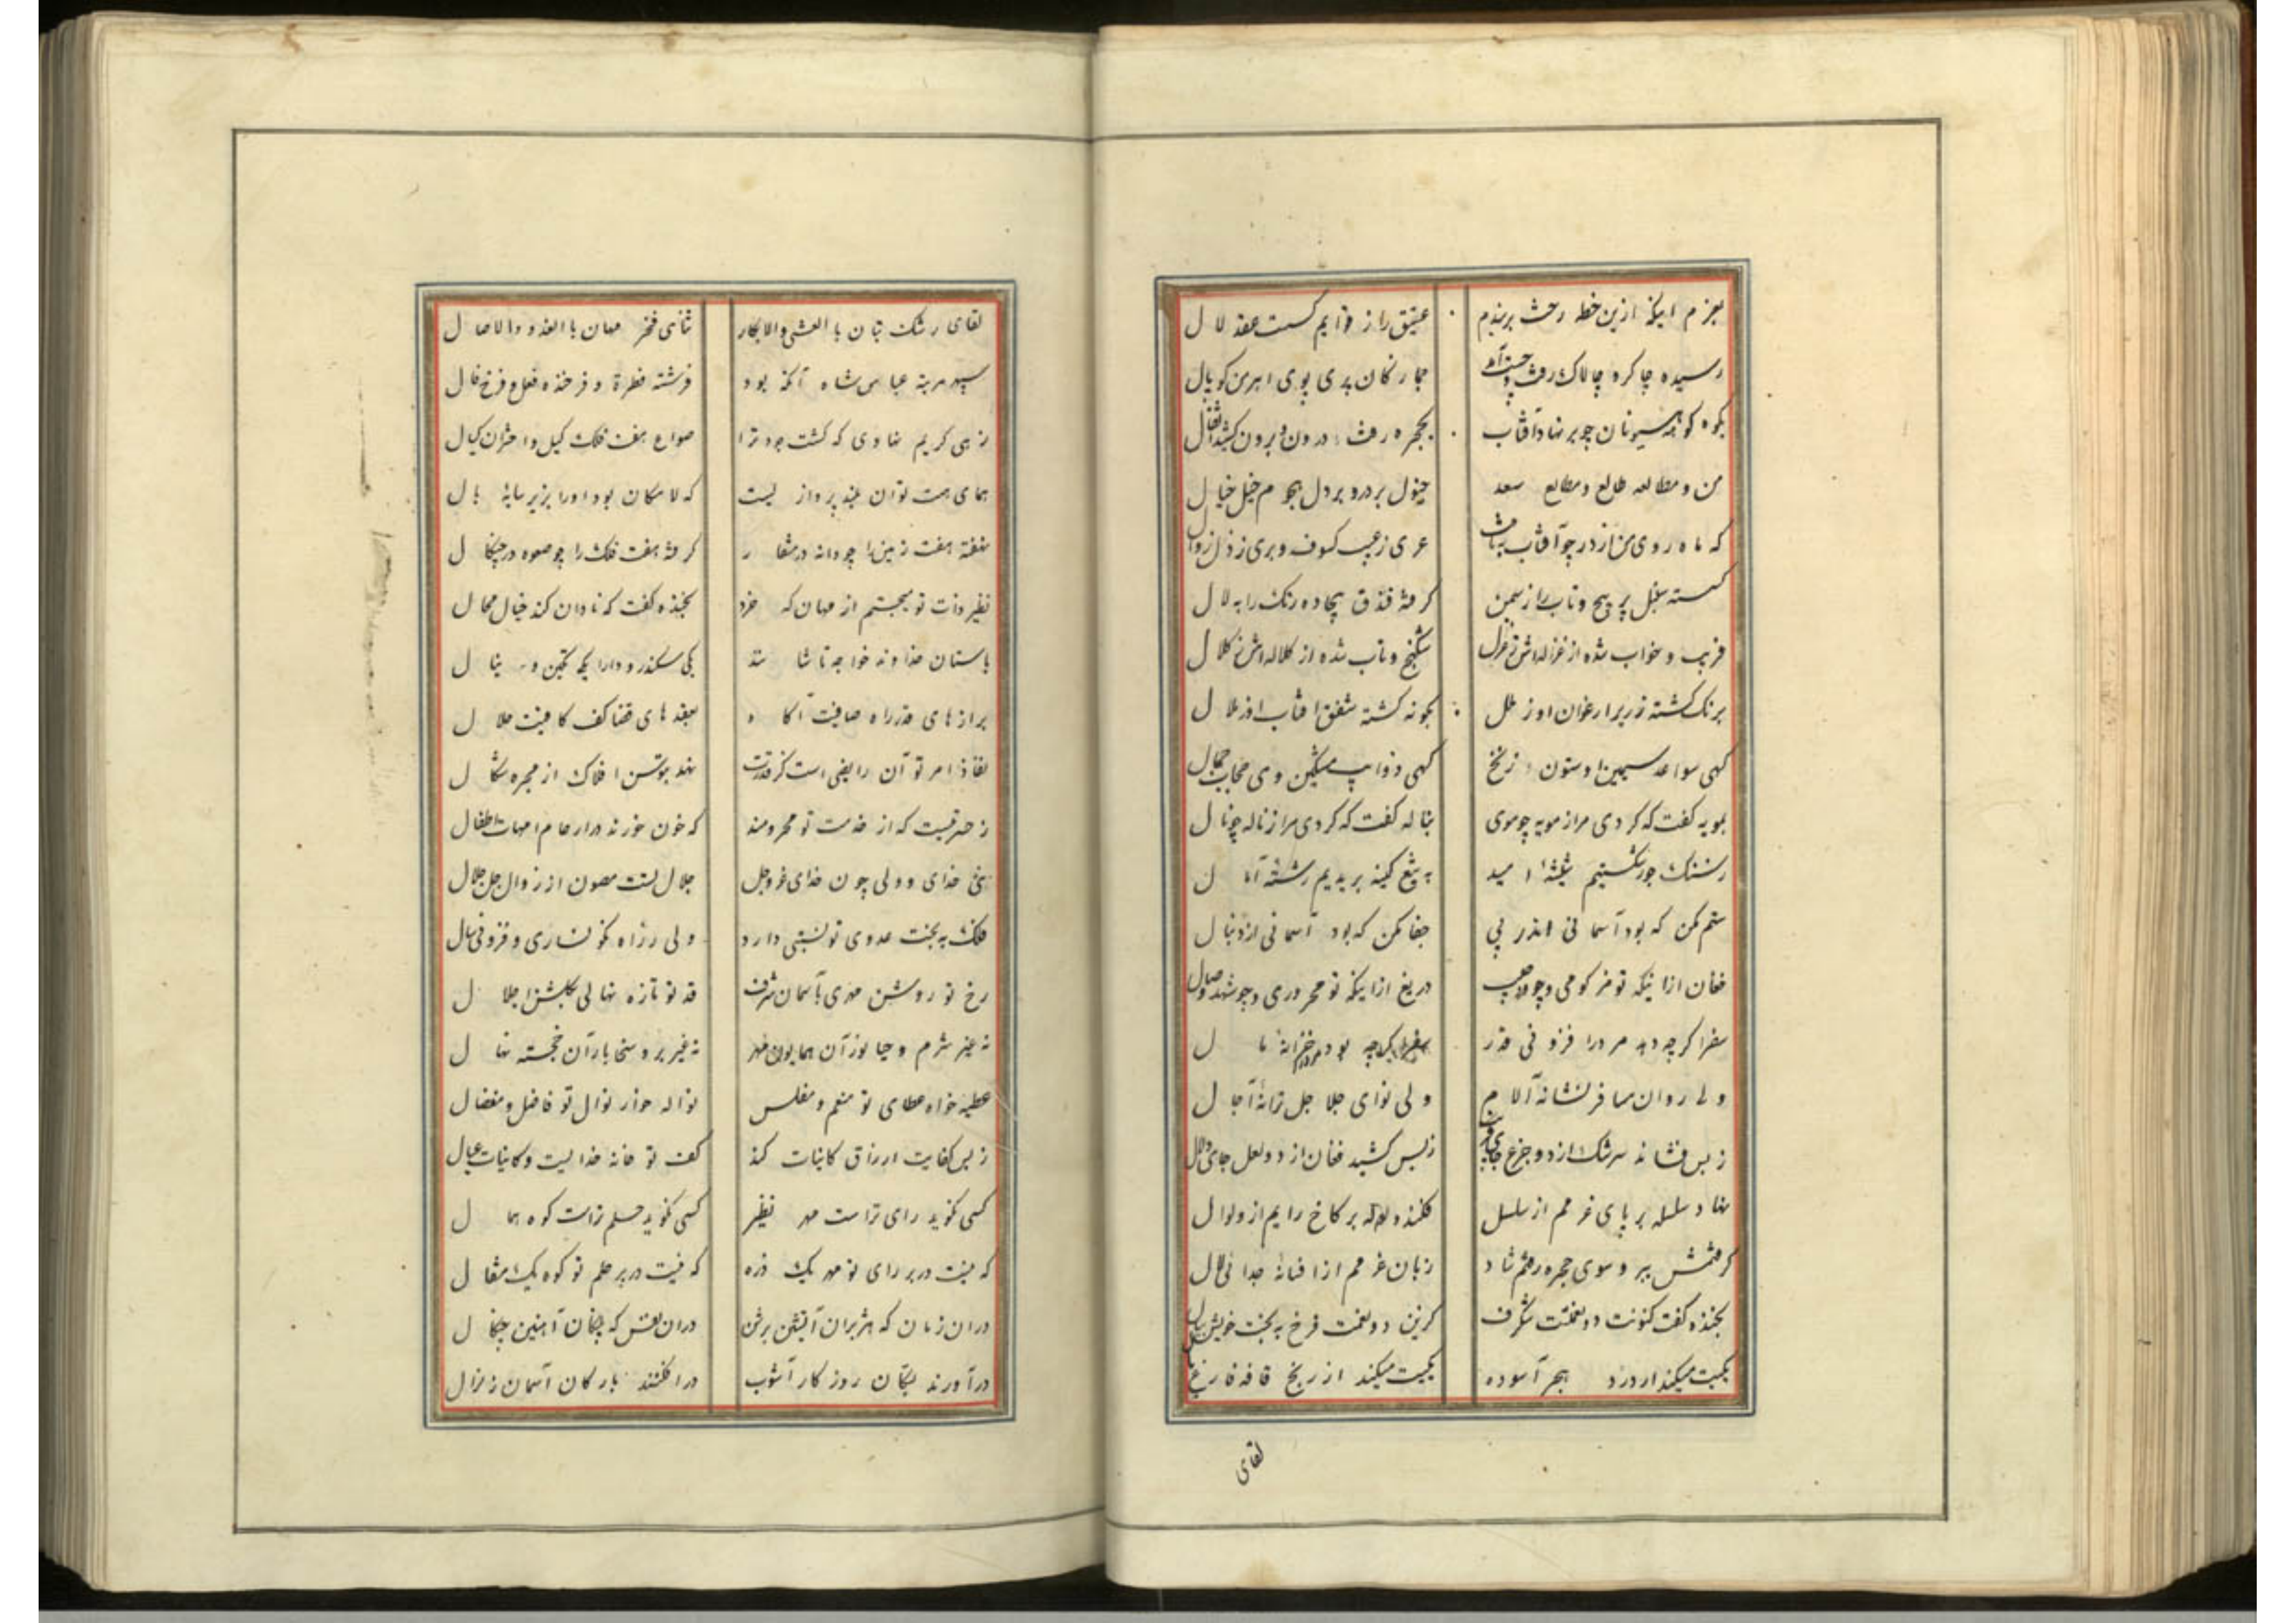 بعزم اینکه ازین خطه رخت بربندم
عقیق را ز قوایم کسست عقد لال
رسیده چاکر و چالاک رفت و
جمازکان پری پوی اهرمن کوپال
بکوه کوهه
بحجره رفت درون و برون کشید اثقال
من و مطالعه طالع و مطالع سعد
خیول بر در و بر دل هجوم خیل خیال
که ماه روی من از در چو آفتاب بتافت
عری ز عیب کسوف و بری ز ذل زوال
کسسته سنبل پر پیچ و تاب را ز سمن
کرفته فندق بیجاده رنک را به لال
فریب و خواب شده از غزالهاش
شکنج و تاب شده از کلالهاش کلال
برنک کشته زریر ارغوان او ز ملل
بکونه کشته شفق آفتاب او ز ملال
کهی سواعد سیمین او ستون زنخ
کهی ذوایب مشکین وی حجاب جمال
بمویه کفت که کردی مرا ز مویه چو موی
بناله کفت که کردی مرا ز ناله چو نال
ز سنک جور شکستیم شیشه امید
به تیغ کینه بریدیم رشته آمال
ستم مکن که بود آسمانی اندر پی
جفا مکن که بود آسمانی از دنبال
فغان ازاینکه تو
دریغ ازاینکه تو محروری و چو شهد وصال
سفر اکر چه دهد مرد را فزونی قدر
سفر اکر چه بود مرد را خزانه مال
ولی روان مسافر نشانه آلام
ولی نوای جلاجل ترانه آجال
ز بس فشانه سرشک از دو جزع
ز بس کشید فغان از دو لعل جای
نهاد سلسله بر پای عزمم از سلسل
فکند ولوله بر کاخ رایم از ولوال
کرفتمش ببر و سوی حجره رفتم شاد
زبان عزمم از افسانه جدائی لال
بخنده کفت کنونت دو نعمتت شکرف
کزین دو نعمت فرخ به بخت خویش ببال
یکیت میکند از درد هجر آسوده
یکیت میکند از رنج قافه فارغ
لقای
لقای رشک بتان بالعشی والابکار
ثنای فخر مهان بالغدو والاصال
سپهر مرتبه عباس شاه آنکه بود
فرشته فطرة و فرخنده فعل و فرخ فال
زهی کریم نهادی که کشت جود ترا
صواع هفت فلک کیل و اختران کیال
همای همت توان بلند پرواز یست
که لامکان بود او را بزیر سایه بال
نهفته هفت زمین را چو دانه در منقار
کرفته هفت فلک را چو صعوه در چنکال
نظیر ذات تو میجستم از مهان که خرد
بخنده کفت که نادان کند خیال محال
باستان خداوند خواجه تاشانند
یکی سکندر و دارا یکی تکین و ینال
برازهای قدر راه صافیت آکاه
بعقدهای قضا کف کافیت حلال
نفاذ امر تو آن رایضی است کز قدرت
نهد بتوسن افلاک از مجره شکال
ز حسرتیست که از خدمت تو محرومند
که خون خورند در ارحام امهات اطفال
نئی خدای و ولی چون خدای عز و جل
جلال تست مصون از زوال جل جلال
فلک به بخت عدوی تو نسبتی دارد
ولی ز راه نکونساری و فزونی سال
رخ تو روشن مهری بآسمان شرف
قد تو تازه نهالی بکلشن اجلال
نه غیر شرم و حیا نور آن همایون مهر
نه غیر بر و سخا بار آن خجسته نهال
عطیه خواه عطای تو منعم و مفلس
نواله خوار نوال تو فاضل و مفضال
ز بس کفایت ارزاق کاینات کند
کف تو خانه خدائیست و کاینات عیال
کسی نکوید رای تراست مهر نظیر
کسی نکوید حلم تراست کوه همال
که نیست در بر رای تو مهر یک ذره
که نیست در بر حلم تو کوه یک مثقال
دران زمان که هژبران آتشین برثن
دران نفس که آهنین چنکال
درآورند بتکان روزکار آشوب
درافکنند بارکان آسمان زلزال